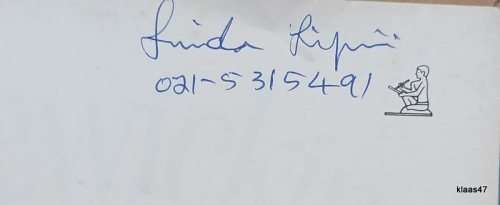 Linda
021-5315491
klaas47